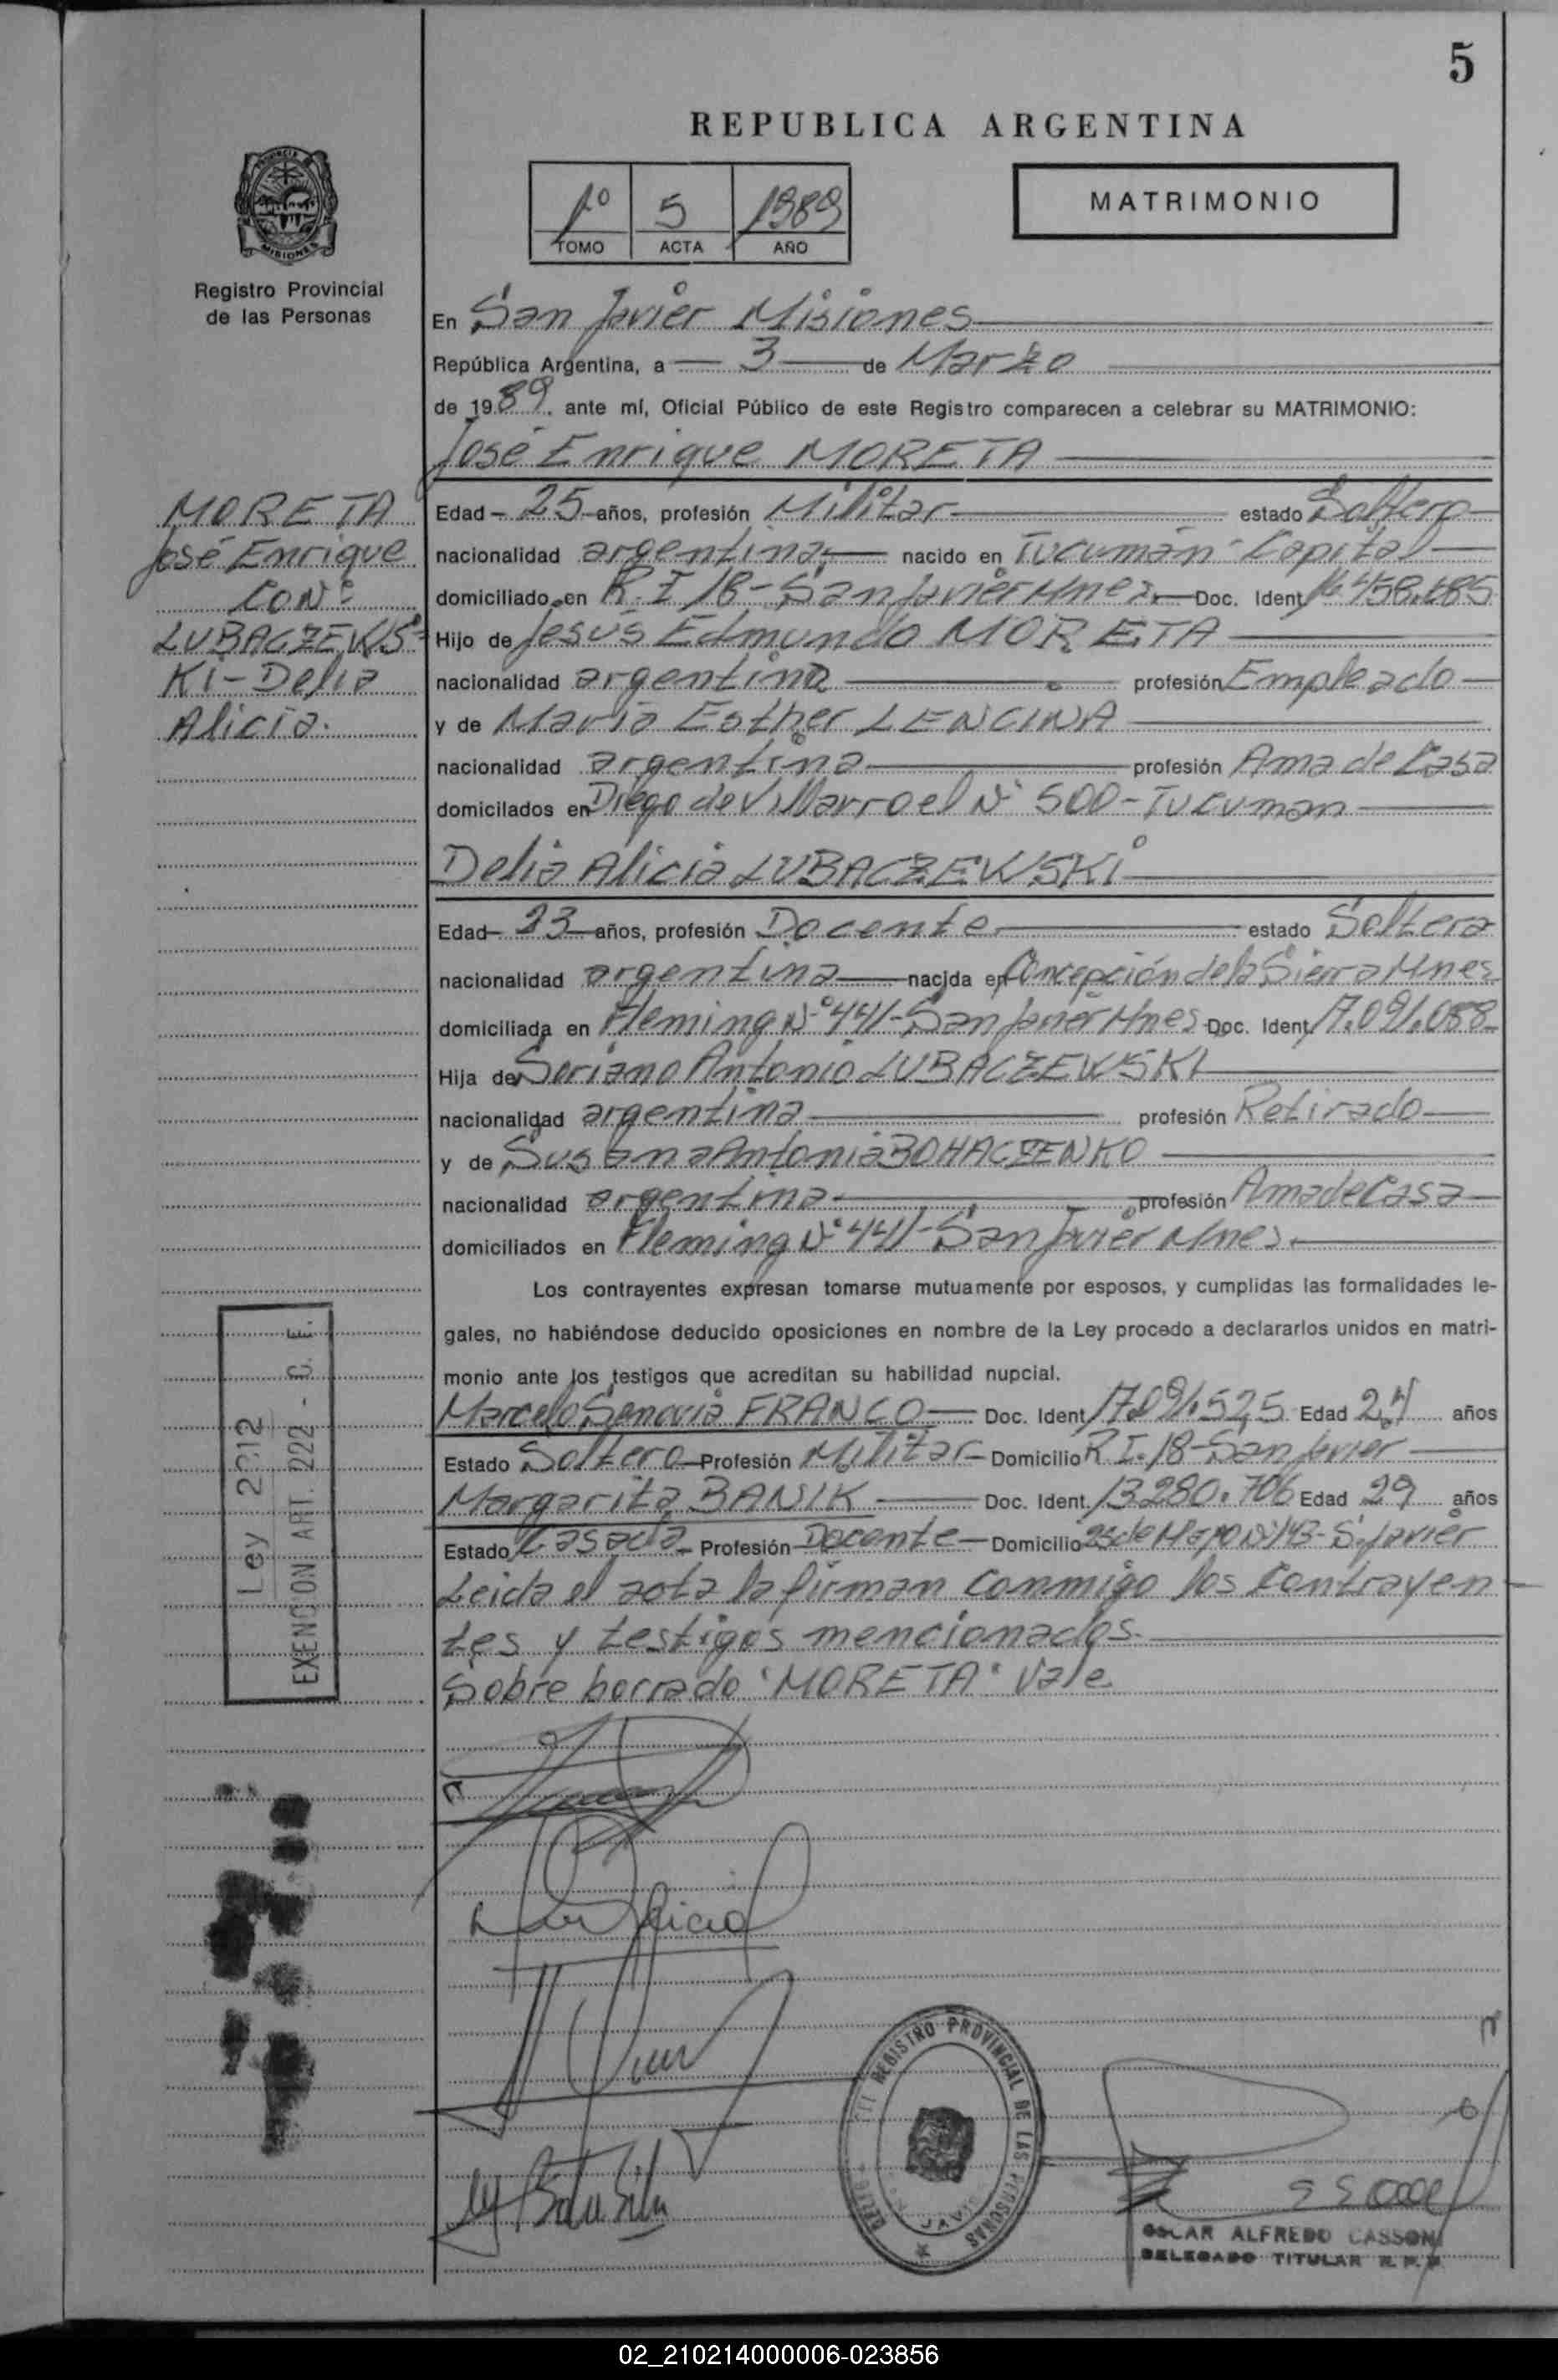 5
REPUBLICA ARGENTINA
1º 5 1989
TOMO ACTA AÑO
MATRIMONIO
PROVINCIA
MISIONES
Registro Provincial
de las Personas
En San Javier Misiones
República Argentina, a 3 de Marzo
de 1989. ante mí, Oficial Público de este Registro comparecen a celebrar su MATRIMONIO:
José Enrique MORETA
MORETA
José Enrique
CON:
LUBACZEWS=
Ki-Delia
Alicia.
Edad 25 años, profesión Militar estado Soltero
nacionalidad argentina nacido en Tucumán-Capital
domiciliado en R.I 18-San Javier Mnes. Doc. Ident
Hijo de Jesús Edmundo MORETA
nacionalidad argentina profesión Empleado
y de María Esther LENCINA
nacionalidad argentina profesión Ama de Casa
domicilados en Diego de Villarroel Nº 500-Tucuman
Delia Alicia LUBACZEWSKi
Edad 23 años, profesión Docente estado Soltera
nacionalidad argentina nacida en Concepción de la Sierra Mnes
domiciliada en Fleming Nº 441-San Javier Mnes Doc. Ident 17.091.088
Hija de Soriano Antonio LUBACZEWSKI
nacionalidad argentina profesión Retirado
y de Susana Antonia BOHACZENKO
nacionalidad argentina profesión Ama de Casa
domiciliados en Fleming Nº 441-San Javier Mnes.
Los contrayentes expresan tomarse mutuamente por esposos, y cumplidas las formalidades le-
gales, no habiéndose deducido oposiciones en nombre de la Ley procedo a declararlos unidos en matri-
monio ante los testigos que acreditan su habilidad nupcial.
Marcelo Senovio FRANCO Doc. Ident 17.091.525 Edad 24 años
Estado Soltero Profesión Militar Domicilio R.I.18-San Javier
Margarita BANIK Doc. Ident. 13.280.706 Edad 29 años
Estado Casada Profesión Docente Domicilio 25 de Mayo Nº 143-S.Javier
Leida el acta la firman conmigo los Contrayen-
tes y testigos mencionados.
Sobre borrado "MORETA" Vale
Ley 2212
EXENCION ART. 222 - C. F.
REGISTRO PROVINCIAL DE LAS PERSONAS
OSCAR ALFREDO CASSONI
DELEGADO TITULAR R. P. P.
02_210214000006-023856